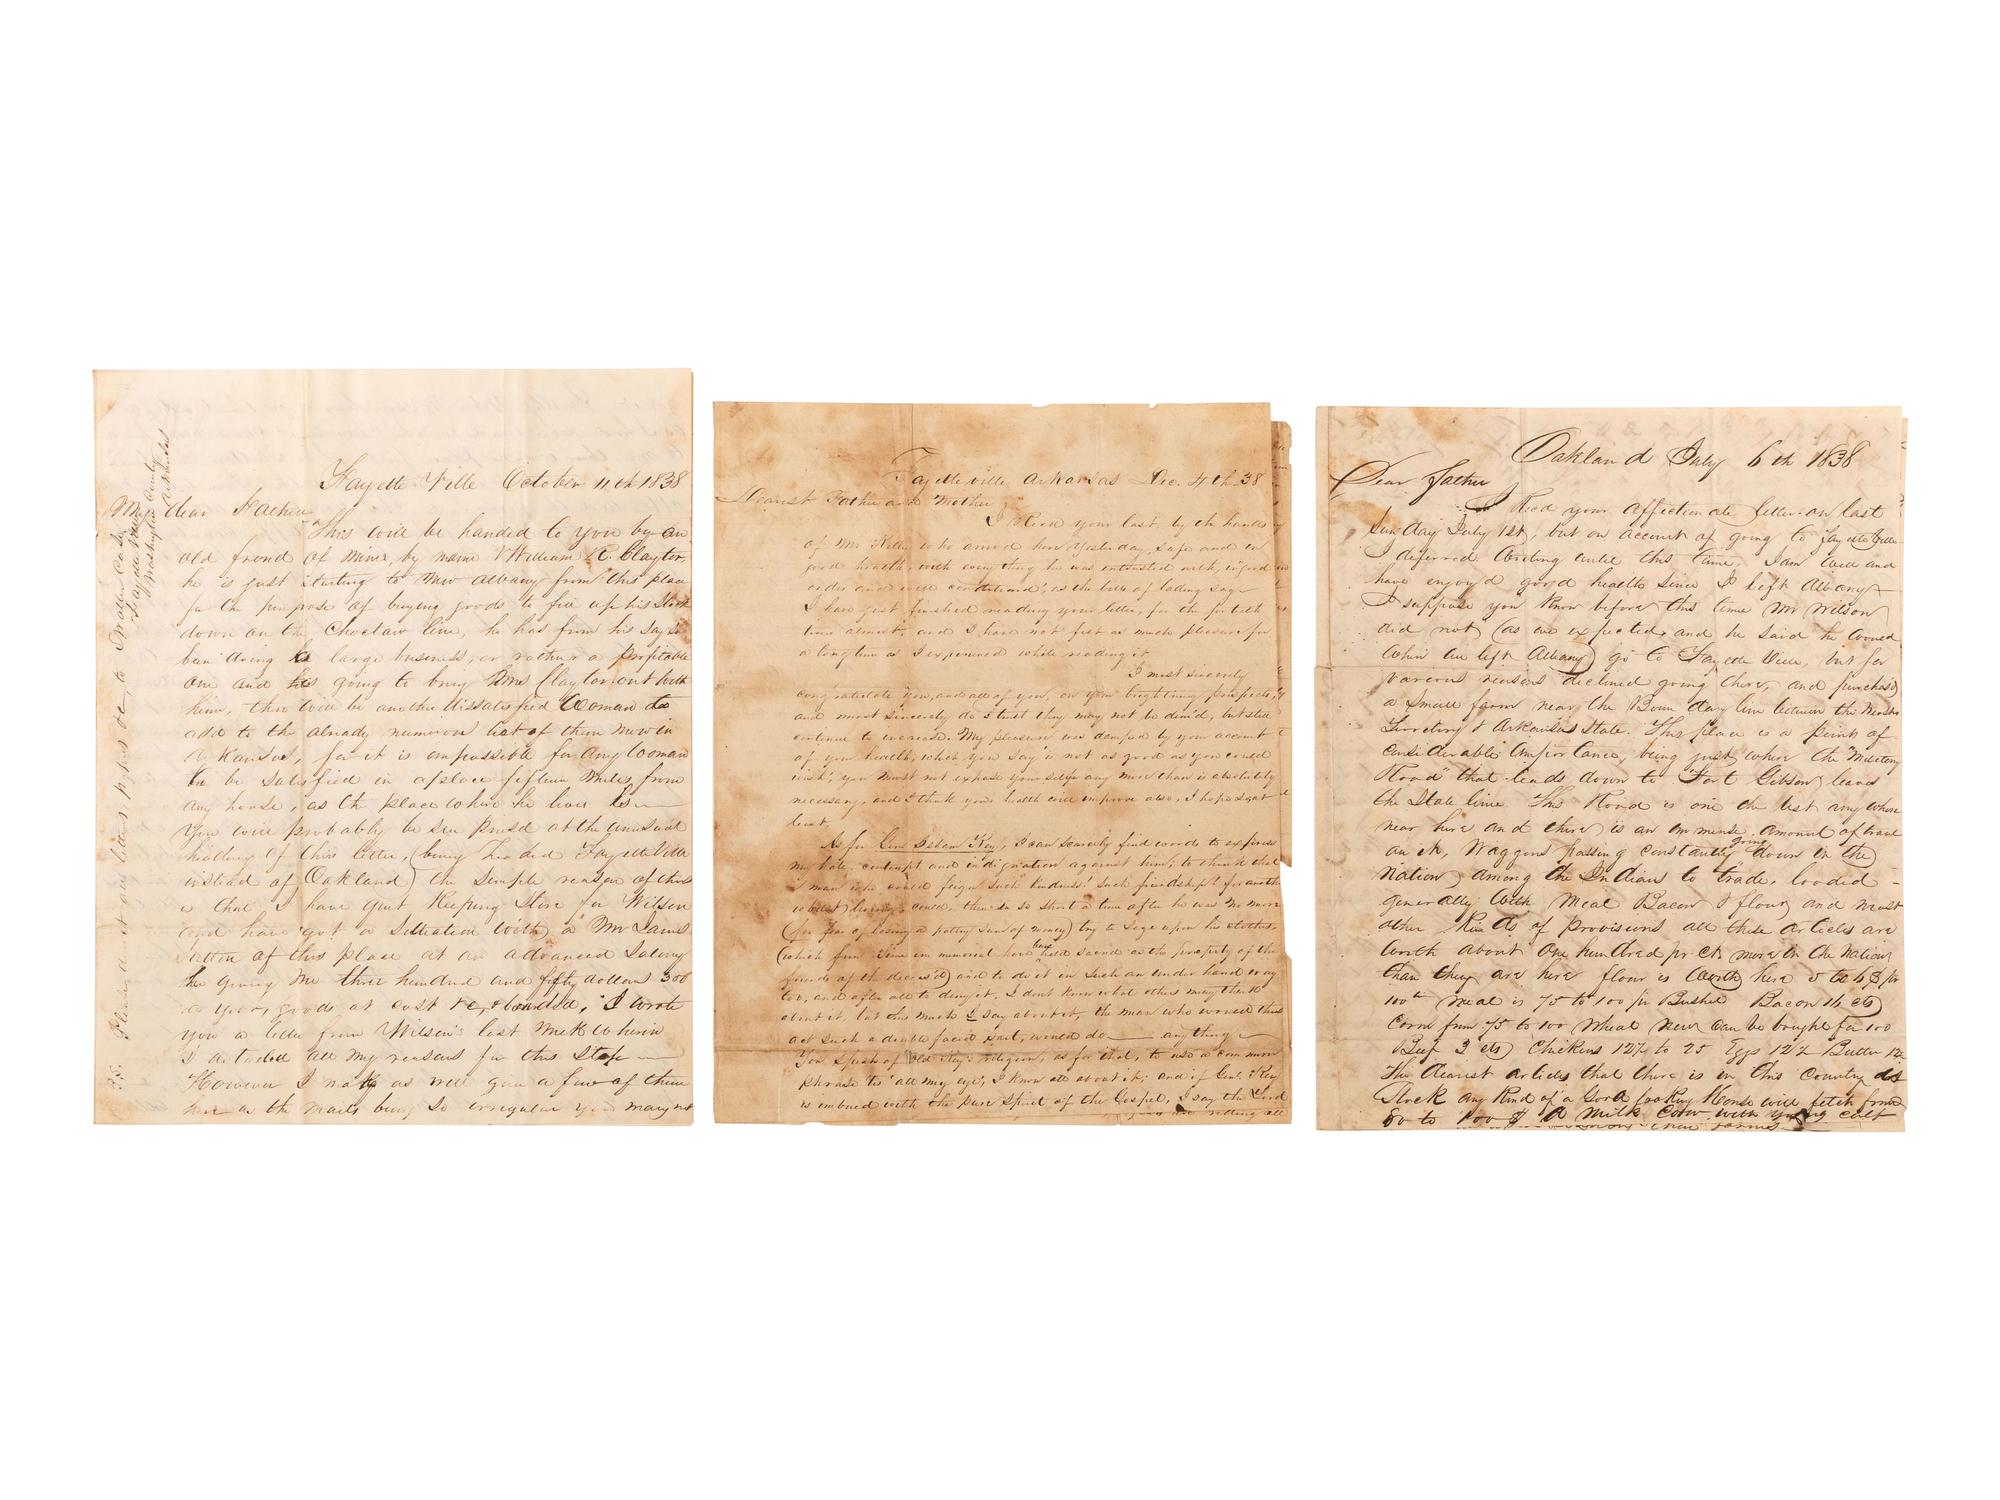 Fayette Ville October 11th 1838
My dear Father
This will be handed to you by an
old friend of mine, by name William R. Clayton
he is just starting to New Albany from this place
for the purpose of buying goods to fill up his Stock
down on the Choctaw line, he has from his say so
been doing a large business, or rather a profitable
one and is going to bring Mrs Clayton out with
him, there will be another dissatisfied Woman to
add to the already numerous list of them now in
Arkansas, for it is impossible for any Woman
to be satisfied in a place fifteen Miles from
any house, as the place where he lives is
You will probably be surprised at the unusual
heading of this letter, (being headed Fayette Ville
instead of Oakland) the simple reason of this
is that I have quit Keeping Store for Wilson
and have got a Situation with a Mr James
Sutton of this place at an advanced Salary
he giving me three hundred and fifty dollars 350
a year, goods at cost &c, & boarded, I wrote
you a letter from Wilson's last week wherein
I detailed all my reasons for this Step
However I may as well give a few of them
here as the mails being so irregular you may not
P.S. Please direct our letters papers &c, to
Fayette Ville
Washington County
Arkansas
Fayetteville Arkansas Dec. 4th 38
Dearest Father and Mother
I recd your last, by the hands
of Mr Kelly who arrived here yesterday, safe and in
good health, with everything he was intrusted with, in good
order and well conditioned, as the bill of lading says
I have just finished reading your letter, for the fortieth
time almost, and I have not felt as much pleasure for
a long time as I experienced while reading it
I most sincerely
congratulate you, and all of you, on your brightning prospects,
and most sincerely do I trust they may not be dim'd, but still
continue to increase. My pleasure was damped by your account
of your health, which you say is not as good as you could
wish, you must not expose yourselfe any more than is absolutely
necessary, and I think your health will improve also, I hope so at
least.
As for Genl Key, I can scarcely find words to express
my hate, contempt and indignation against him, to think that
a man who could feign such kindness! such friendship! for another
living, could, then in so short a time after he was no more
(for fear of losing a paltry sum of money) try to Seize upon his clothes
(which from time immemorial have been held sacred as the property of the
friends of the deceas'd) and to do it in such an under hand way
too, and after all to deny it, I dont know what others may think
about it, but this much I say about it, the man who would thus
act such a double faced part, would do anything
You speak of Old Key's religion, as for that, to use a common
phrase tis "all my eye", I know all about it; and if Genl. Key
is imbued with the pure spirit of the Gospel, I say the Lord
Oakland July 6th 1838
Dear father
I Recd your affectionate letter on last
Sunday July 1st, but on account of going to Fayette Ville
I deferred writing untill this time. I am well and
have enjoy'd good health since I left Albany
I suppose you know before this time Mr Wilson
did not (as we expected, and he said he would
when we left Albany) go to Fayette Ville, but for
various reasons declined going there, and purchas'd
a small farm near the Boundary line between the Western
Territory & Arkansas State. This place is a point of
considerable importance, being just where the "Military
Road" that leads down to Fort Gibson, leaves
the State line. This Road is one the best any where
near here and there is an immense amount of travel
on it, Waggons passing constantly going down in the
Nation, among the Indians to trade, loaded
generally with Meal Bacon & flour, and most
other Kinds of provisions all these articles are
worth about one hundred pr ct more in the Nation
than they are here flour is worth here 5 to 6 $ pr
100lb meal is 75 to 100 pr Bushel Bacon 16 cts
Corn from 75 to 100 Wheat New can be bought for 100
Beef 3 cts Chickens 12½ to 25 Eggs 12½ Butter 12½
The dearest articles that there is in this Country is
Stock any Kind of a Good looking Horse will fetch from
80 to 100 $ A Milk Cow with young calf